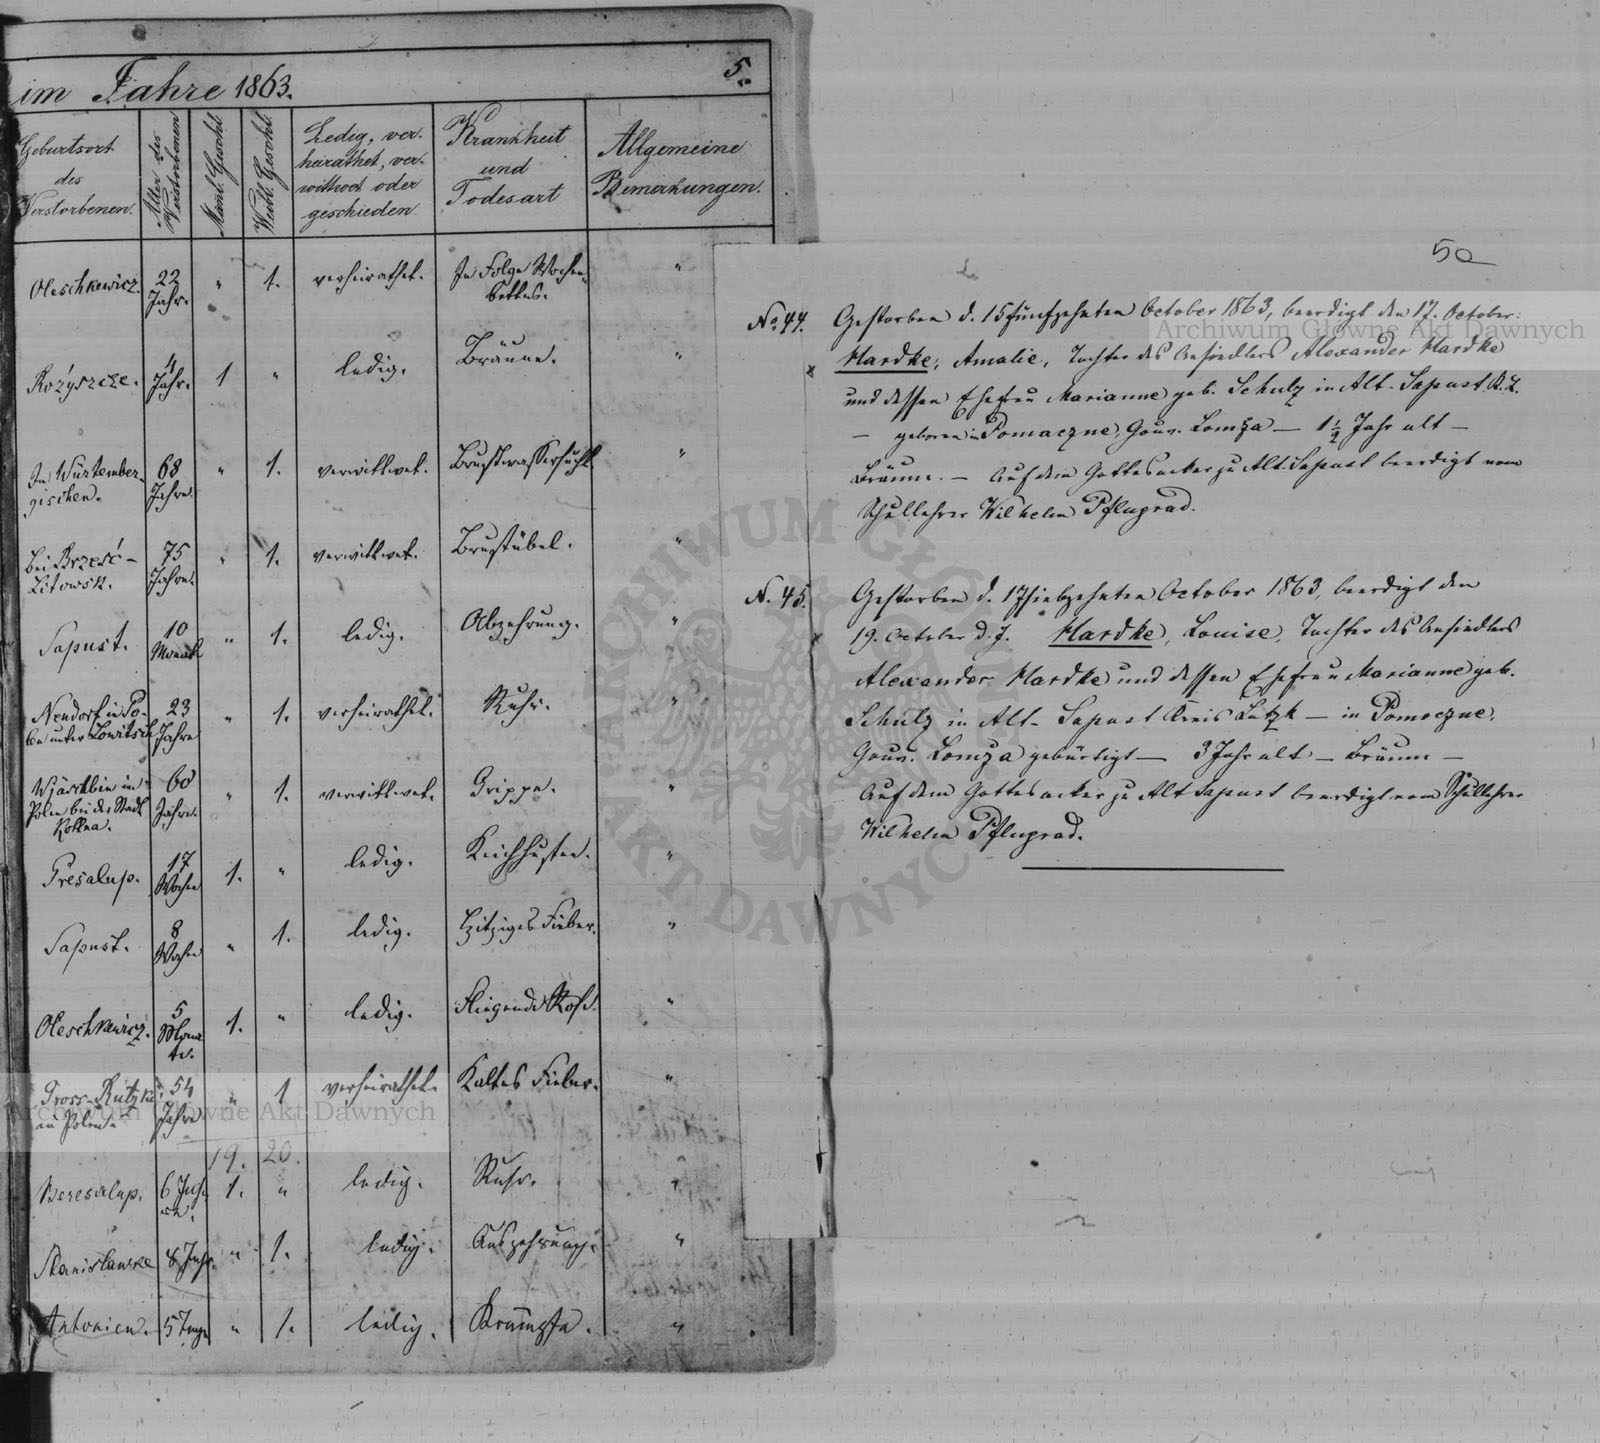 im Jahre 1863.
5.
Geburtsort des Verstorbenen.
Alter des Verstorbenen
Männl. Geschl.
Weibl. Geschl.
Ledig, ver-
heirathet, ver-
wittwet oder
geschieden
Krankheit
und
Todesart
Allgemeine
Bemerkungen.
Oleschkewicz. 22 Jahr. " 1. verheirathet. In Folge Wochen-
bettes. "
Rożyszcze. 4 Jahr. 1 " ledig. Bräune. "
In Würtember-
gischen. 68 Jahre " 1. verwittwet. Brustwassersucht "
bei Brześć-
Litowsk. 75 Jahre. " 1. verwittwet. Brustübel. "
Sapust. 10 Monat " 1. ledig. Abzehrung. "
Neudorf in Po-
len unter Lowitsch 23 Jahre " 1. verheirathet. Ruhr. "
in
Polen bei der Stadt
Kollna. 60 Jahre. " 1. verwittwet. Grippe. "
Presalup. 17 Wochen 1. " ledig. Keichhusten. "
Sapust. 8 Wochen " 1. ledig. Hitziges Fieber. "
Oleschkewicz. 5 Mona-
te. 1. " ledig. Fliegende Rose. "
in Polen. 54 Jahre " 1 verheirathet. Kaltes Fieber. "
19. 20.
Beresalup. 6 Jah-
re. 1. " ledig. Ruhr. "
Stanislawke 8 Jahr. " 1. ledig. Auszehrung. "
Antonien. 5 Tage " 1. ledig. Krämpfe. "
5a
No. 44. Gestorben d. 15 fünfzehnten October 1863, beerdigt den 17. October:
Hardke, Amalie, Tochter des Ansiedlers Alexander Hardke
und dessen Ehefrau Marianne geb. Schulz in Alt-Sapust K. L.
— geboren in Pomaczne, Gouv. Lomża — 1½ Jahr alt —
Bräune. — Auf dem Gottesacker zu Alt Sapust beerdigt vom
Schullehrer Wilhelm Pflugrad.
N. 45. Gestorben d. 17 siebzehnten October 1863, beerdigt den
19. October d. J. Hardke, Louise, Tochter des Ansiedlers
Alexander Hardke und dessen Ehefrau Marianne geb.
Schulz in Alt-Sapust Kreis Lutzk — in Pomaczne,
Gouv. Lomża gebürtigt — 3 Jahr alt — Bräune —
Auf dem Gottesacker zu Alt Sapust beerdigt vom Schullehrer
Wilhelm Pflugrad.
Archiwum Główne Akt Dawnych
Archiwum Główne Akt Dawnych
ARCHIWUM GŁÓWNE AKT DAWNYCH